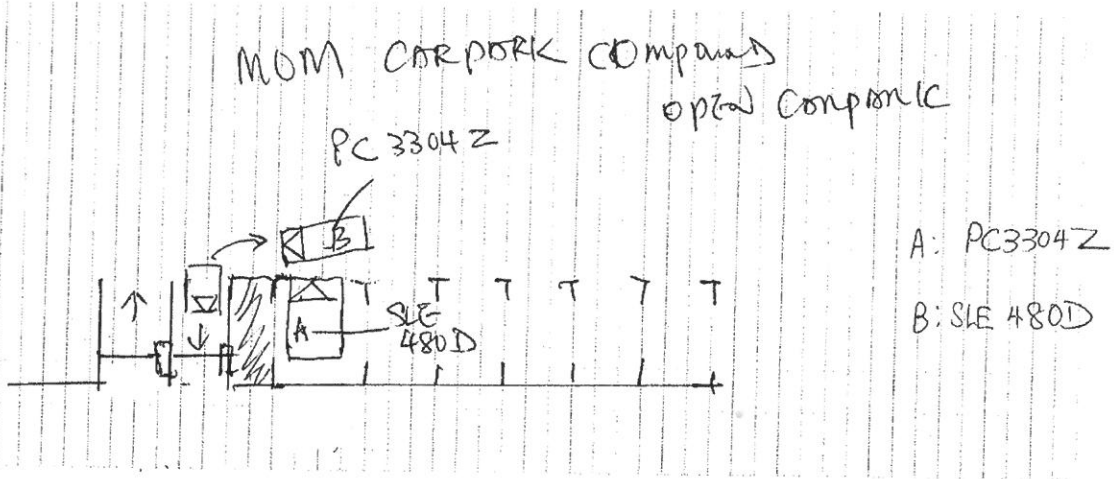 MOM CARPARK COMPOUND
OPEN CARPARK
PC 3304 Z
B
A
SLE
480D
A: PC3304Z
B: SLE 480D